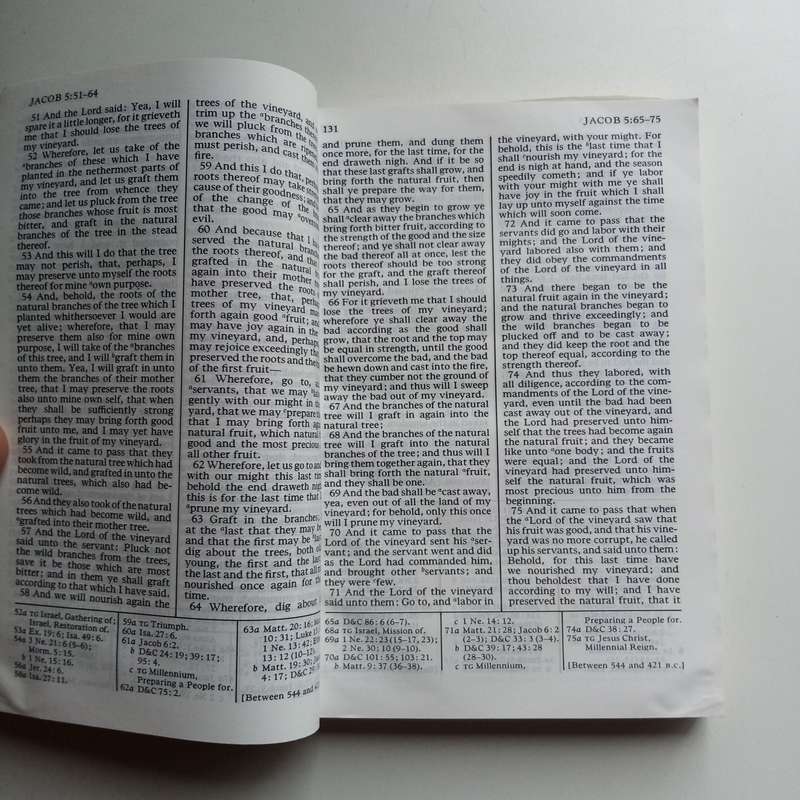 JACOB 5:51–64
51 And the Lord said: Yea, I will
spare it a little longer, for it grieveth
me that I should lose the trees of
my vineyard.
52 Wherefore, let us take of the
ᵃbranches of these which I have
planted in the nethermost parts of
my vineyard, and let us graft them
into the tree from whence they
came; and let us pluck from the tree
those branches whose fruit is most
bitter, and graft in the natural
branches of the tree in the stead
thereof.
53 And this will I do that the tree
may not perish, that, perhaps, I
may preserve unto myself the roots
thereof for mine ᵃown purpose.
54 And, behold, the roots of the
natural branches of the tree which I
planted whithersoever I would are
yet alive; wherefore, that I may
preserve them also for mine own
purpose, I will take of the ᵃbranches
of this tree, and I will ᵇgraft them in
unto them. Yea, I will graft in unto
them the branches of their mother
tree, that I may preserve the roots
also unto mine own self, that when
they shall be sufficiently strong
perhaps they may bring forth good
fruit unto me, and I may yet have
glory in the fruit of my vineyard.
55 And it came to pass that they
took from the natural tree which had
become wild, and grafted in unto the
natural trees, which also had be-
come wild.
56 And they also took of the natural
trees which had become wild, and
ᵃgrafted into their mother tree.
57 And the Lord of the vineyard
said unto the servant: Pluck not
the wild branches from the trees,
save it be those which are most
bitter; and in them ye shall graft
according to that which I have said.
58 And we will nourish again the
trees of the vineyard, and
trim up the ᵃbranches the
we will pluck from the
branches which are
must perish, and cast
fire.
59 And this I do that,
roots thereof may take
cause of their goodness; and
of the change of the
that the good may
evil.
60 And because that I
served the natural
the roots thereof, and
grafted in the natural
again into their mother
have preserved the
mother tree, that,
trees of my vineyard
forth again good ᵃfruit;
may have joy again in
my vineyard, and, perhaps,
may rejoice exceedingly
preserved the roots and
of the first fruit—
61 Wherefore, go to,
ᵃservants, that we may
gently with our might in
yard, that we may ᶜprepare
that I may bring forth
natural fruit, which
good and the most precious
all other fruit.
62 Wherefore, let us go to and
with our might this last
behold the end draweth
this is for the last time that I
ᵃprune my vineyard.
63 Graft in the branches;
at the ᵃlast that they may be
and that the first may be ᵇlast
dig about the trees, both
young, the first and the
the last and the first, that all
nourished once again for the
time.
64 Wherefore, dig about
52a TG Israel, Gathering of;
Israel, Restoration of.
53a Ex. 19:6; Isa. 49:6.
54a 3 Ne. 21:6 (5–6);
Morm. 5:15.
b 1 Ne. 15:16.
56a Jer. 24:6.
58a Isa. 27:11.
59a TG Triumph.
60a Isa. 27:6.
61a Jacob 6:2.
b D&C 24:19; 39:17;
95:4.
c TG Millennium,
Preparing a People for.
62a D&C 75:2.
63a Matt. 20:16;
10:31; Luke
1 Ne. 13:42;
13:12 (10–12).
b Matt. 19:30;
4:17; D&C
[Between 544 and
131
JACOB 5:65–75
and prune them, and dung them
once more, for the last time, for the
end draweth nigh. And if it be so
that these last grafts shall grow, and
bring forth the natural fruit, then
shall ye prepare the way for them,
that they may grow.
65 And as they begin to grow ye
shall ᵃclear away the branches which
bring forth bitter fruit, according to
the strength of the good and the size
thereof; and ye shall not clear away
the bad thereof all at once, lest the
roots thereof should be too strong
for the graft, and the graft thereof
shall perish, and I lose the trees of
my vineyard.
66 For it grieveth me that I should
lose the trees of my vineyard;
wherefore ye shall clear away the
bad according as the good shall
grow, that the root and the top may
be equal in strength, until the good
shall overcome the bad, and the bad
be hewn down and cast into the fire,
that they cumber not the ground of
my vineyard; and thus will I sweep
away the bad out of my vineyard.
67 And the branches of the natural
tree will I graft in again into the
natural tree;
68 And the branches of the natural
tree will I graft into the natural
branches of the tree; and thus will I
bring them together again, that they
shall bring forth the natural ᵃfruit,
and they shall be one.
69 And the bad shall be ᵃcast away,
yea, even out of all the land of my
vineyard; for behold, only this once
will I prune my vineyard.
70 And it came to pass that the
Lord of the vineyard sent his ᵃser-
vant; and the servant went and did
as the Lord had commanded him,
and brought other ᵇservants; and
they were ᶜfew.
71 And the Lord of the vineyard
said unto them: Go to, and ᵃlabor in
the vineyard, with your might. For
behold, this is the ᵇlast time that I
shall ᶜnourish my vineyard; for the
end is nigh at hand, and the season
speedily cometh; and if ye labor
with your might with me ye shall
have joy in the fruit which I shall
lay up unto myself against the time
which will soon come.
72 And it came to pass that the
servants did go and labor with their
mights; and the Lord of the vine-
yard labored also with them; and
they did obey the commandments
of the Lord of the vineyard in all
things.
73 And there began to be the
natural fruit again in the vineyard;
and the natural branches began to
grow and thrive exceedingly; and
the wild branches began to be
plucked off and to be cast away;
and they did keep the root and the
top thereof equal, according to the
strength thereof.
74 And thus they labored, with
all diligence, according to the com-
mandments of the Lord of the vine-
yard, even until the bad had been
cast away out of the vineyard, and
the Lord had preserved unto him-
self that the trees had become again
the natural fruit; and they became
like unto ᵃone body; and the fruits
were equal; and the Lord of the
vineyard had preserved unto him-
self the natural fruit, which was
most precious unto him from the
beginning.
75 And it came to pass that when
the ᵃLord of the vineyard saw that
his fruit was good, and that his vine-
yard was no more corrupt, he called
up his servants, and said unto them:
Behold, for this last time have
we nourished my vineyard; and
thou beholdest that I have done
according to my will; and I have
preserved the natural fruit, that it
65a D&C 86:6 (6–7).
68a TG Israel, Mission of.
69a 1 Ne. 22:23 (15–17, 23);
2 Ne. 30:10 (9–10).
70a D&C 101:55; 103:21.
b Matt. 9:37 (36–38).
c 1 Ne. 14:12.
71a Matt. 21:28; Jacob 6:2
(2–3); D&C 33:3 (3–4).
b D&C 39:17; 43:28
(28–30).
c TG Millennium,
Preparing a People for.
74a D&C 38:27.
75a TG Jesus Christ,
Millennial Reign.
[Between 544 and 421 B.C.]